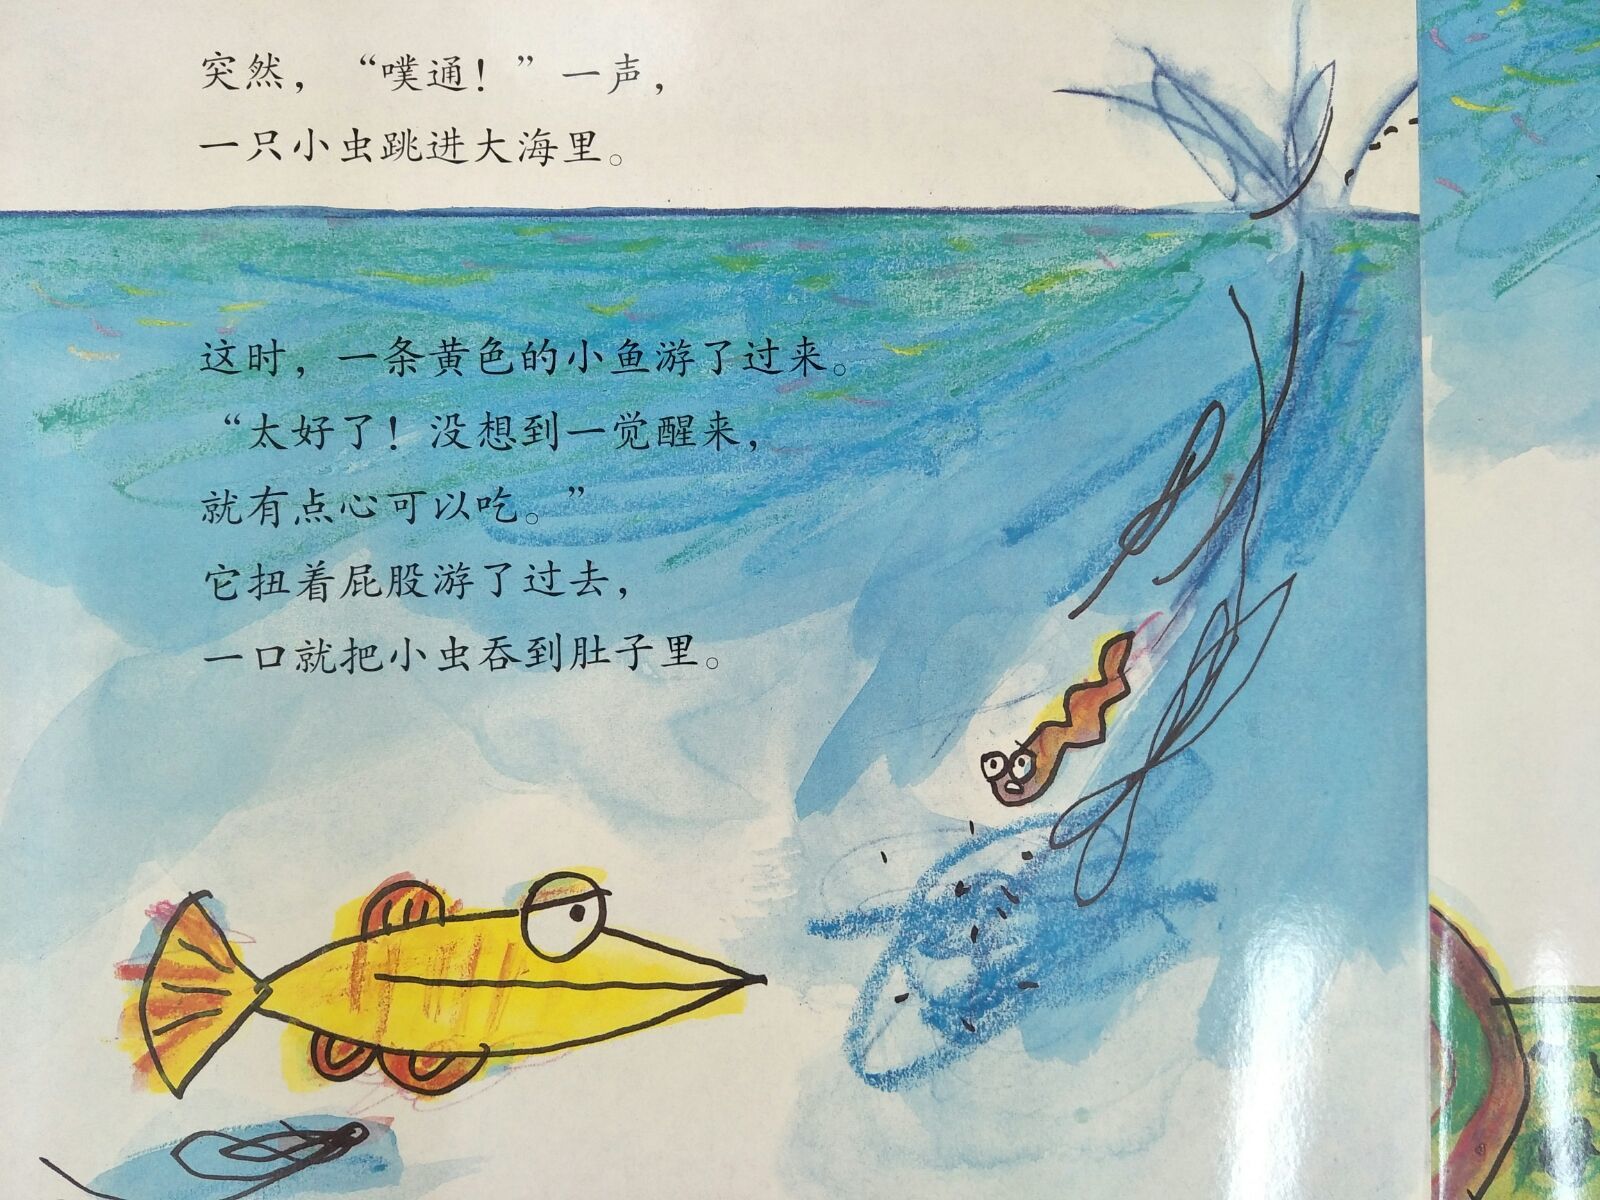 突然，“噗通！”一声，
一只小虫跳进大海里。
这时，一条黄色的小鱼游了过来。
“太好了！没想到一觉醒来，
就有点心可以吃。”
它扭着屁股游了过去，
一口就把小虫吞到肚子里。